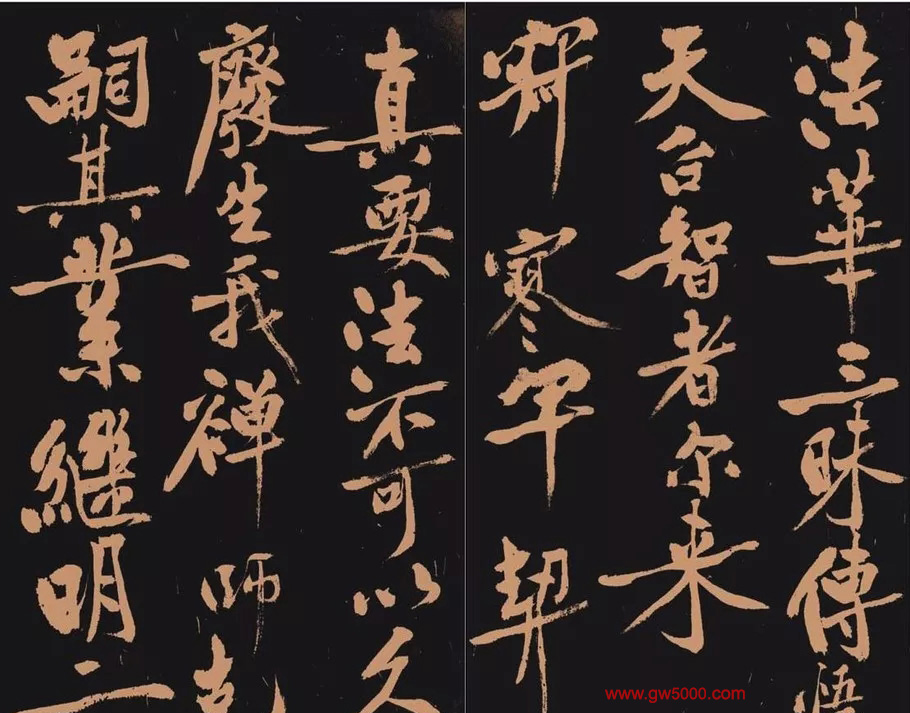 法華三昧傳悟
天台智者尔来
寂寥罕契
真要法不可以久
廢生我禪師克
嗣其業継明二
www.gw5000.com